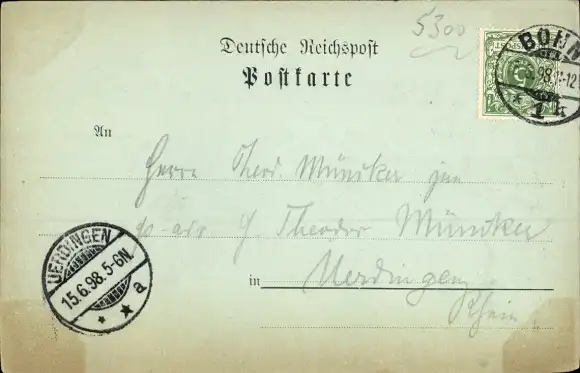 5300
Deutsche Reichspost
Postkarte
BONN
98.11-12
* 1 k
An
Herrn Theod. Müncker jun
Theodor Müncker
in Uerdingen
Rhein
UERDINGEN
15.6.98.5-6N.
* * a